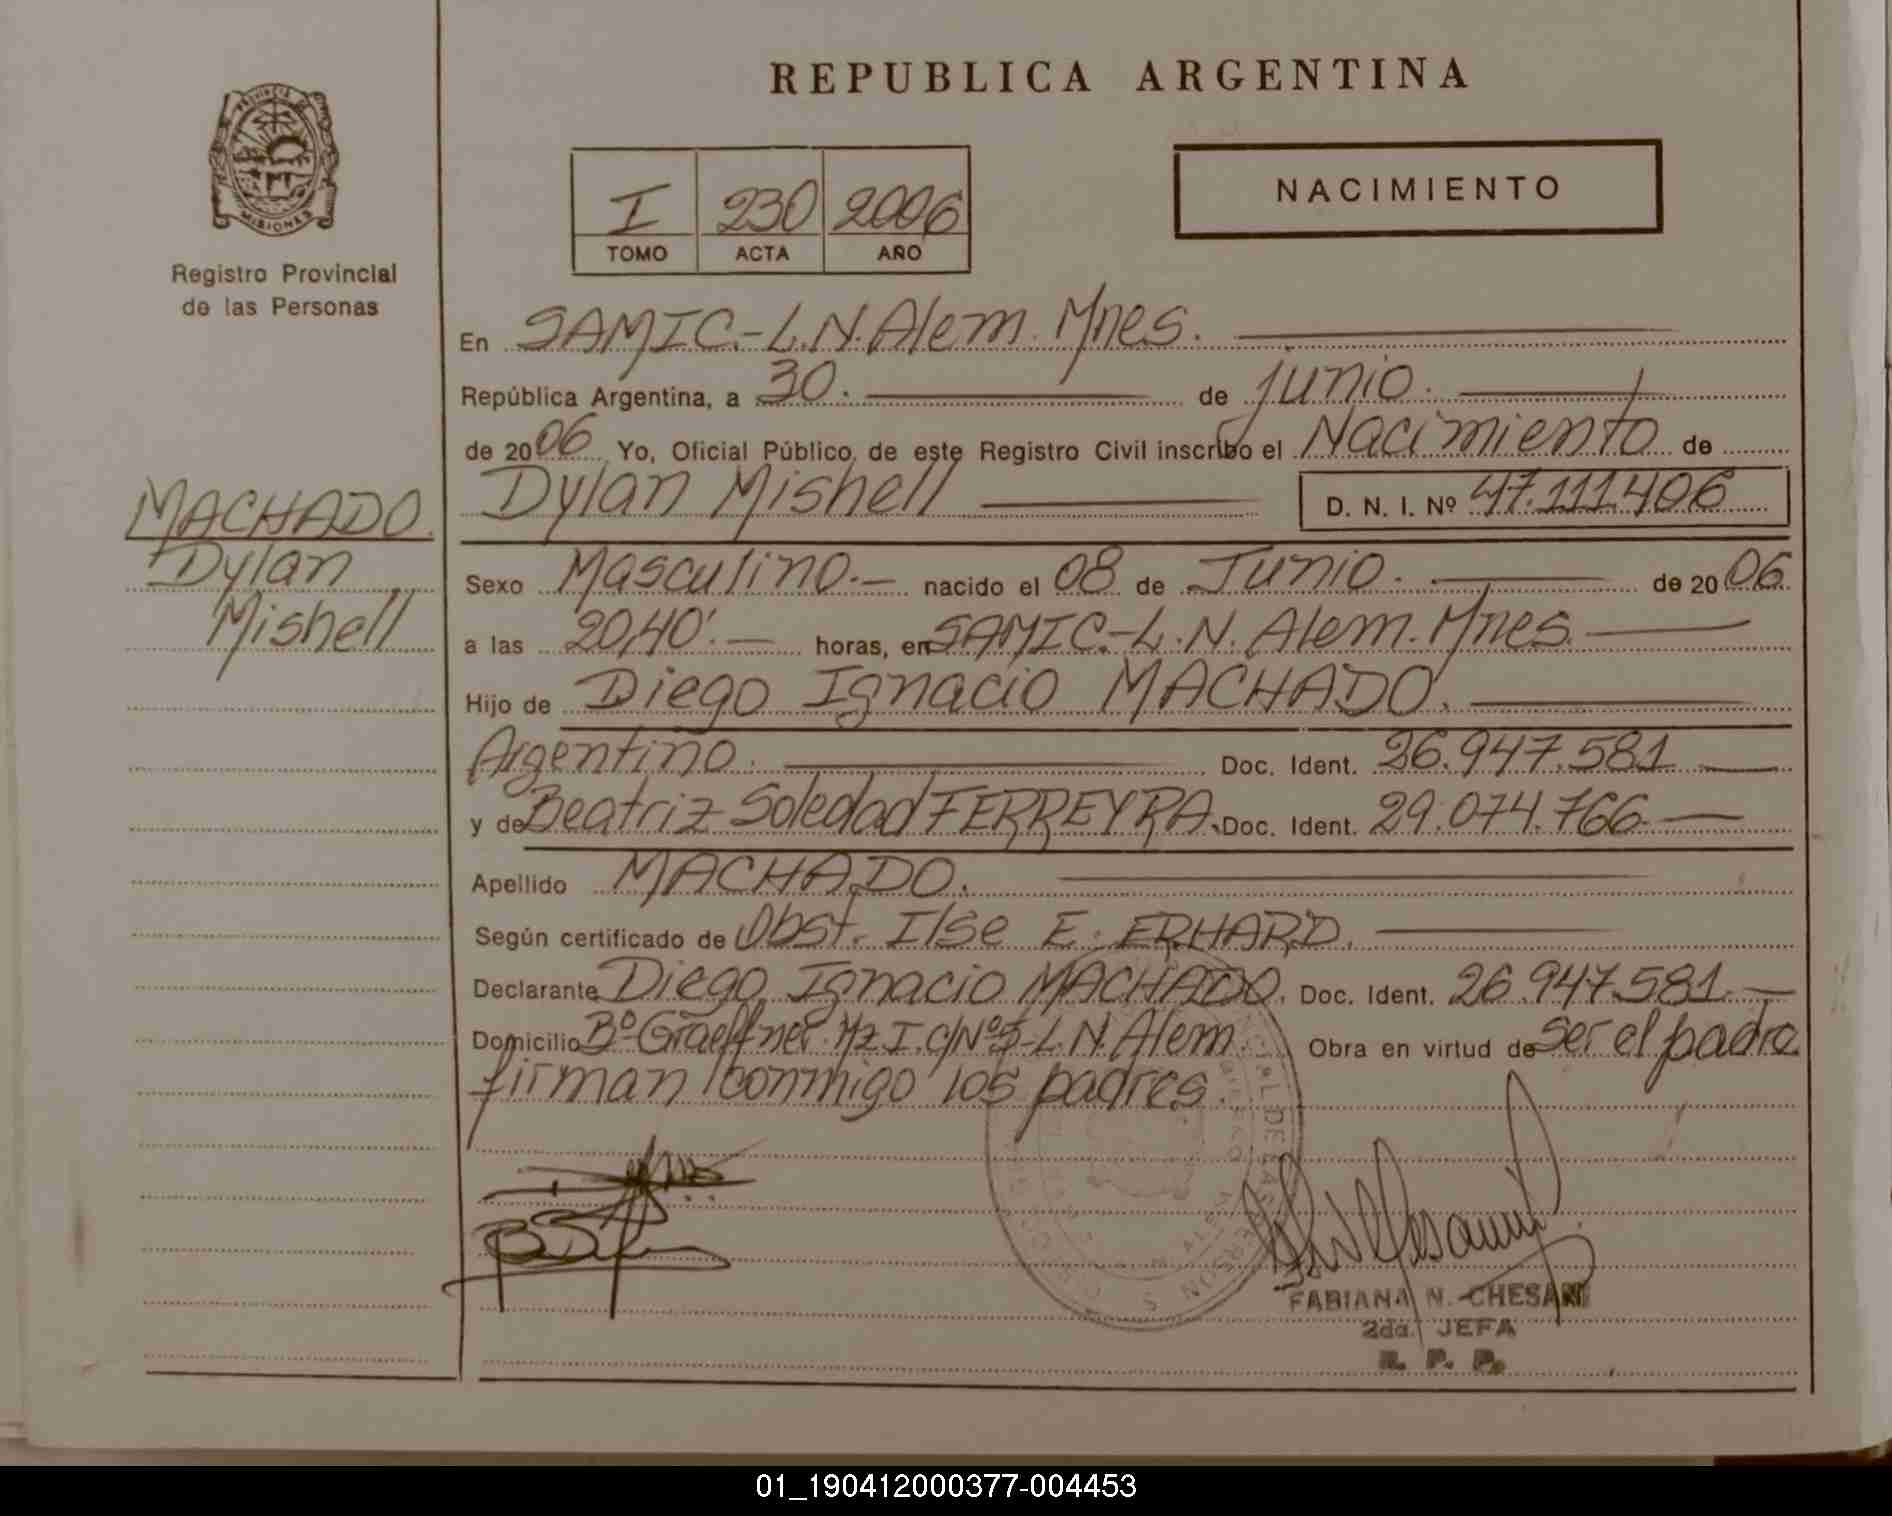 REPUBLICA ARGENTINA
PROVINCIA DE
MISIONES
Registro Provincial
de las Personas
NACIMIENTO
I 230 2006
TOMO ACTA AÑO
En SAMIC.-L.N.Alem.Mnes.
República Argentina, a 30. de junio.
de 2006 Yo, Oficial Público, de este Registro Civil inscribo el Nacimiento de
Dylan Mishell D. N. I. Nº 47.111.406
MACHADO.
Dylan
Mishell
Sexo Masculino.- nacido el 08 de Junio. de 2006.
a las 20,40'.- horas, en SAMIC.-L.N. Alem. Mnes.
Hijo de Diego Ignacio MACHADO.
Argentino. Doc. Ident. 26.947.581
y de Beatriz Soledad FERREYRA. Doc. Ident. 29.074.766
Apellido MACHADO.
Según certificado de Obst. Ilse E. ERHARD.
Declarante Diego Ignacio MACHADO. Doc. Ident. 26.947.581
Domicilio Bº Graeffner Mz I. c/Nº5-L.N.Alem Obra en virtud de ser el padre
firman conmigo los padres.
FABIANA N. CHESANI
2da. JEFA
R. P. P.
01_190412000377-004453